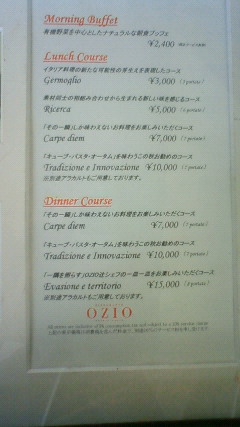 Morning Buffet
有機野菜を中心としたナチュラルな朝食ブッフェ
¥2,400
Lunch Course
イタリア料理の新たな可能性の芽生えを表現したコース
Germoglio ¥3,000 (3 portate)
素材同士の相組み合わせから生まれる新しい味を感じるコース
Ricerca ¥5,000 (5 portate)
「その一瞬」しか味わえないお料理をお楽しみいただくコース
Carpe diem ¥7,000 (7 portate)
「キューブ・パスタ・オータム」を味わうこの秋お勧めのコース
Tradizione e Innovazione ¥10,000 (7 portate)
※別途アラカルトもご用意しております。
Dinner Course
「その一瞬」しか味わえないお料理をお楽しみいただくコース
Carpe diem ¥7,000 (7 portate)
「キューブ・パスタ・オータム」を味わうこの秋お勧めのコース
Tradizione e Innovazione ¥10,000 (7 portate)
「一瞬を揺らす」OZIO Evasione e territorio ¥15,000
※別途アラカルトもご用意しております。
OZIO